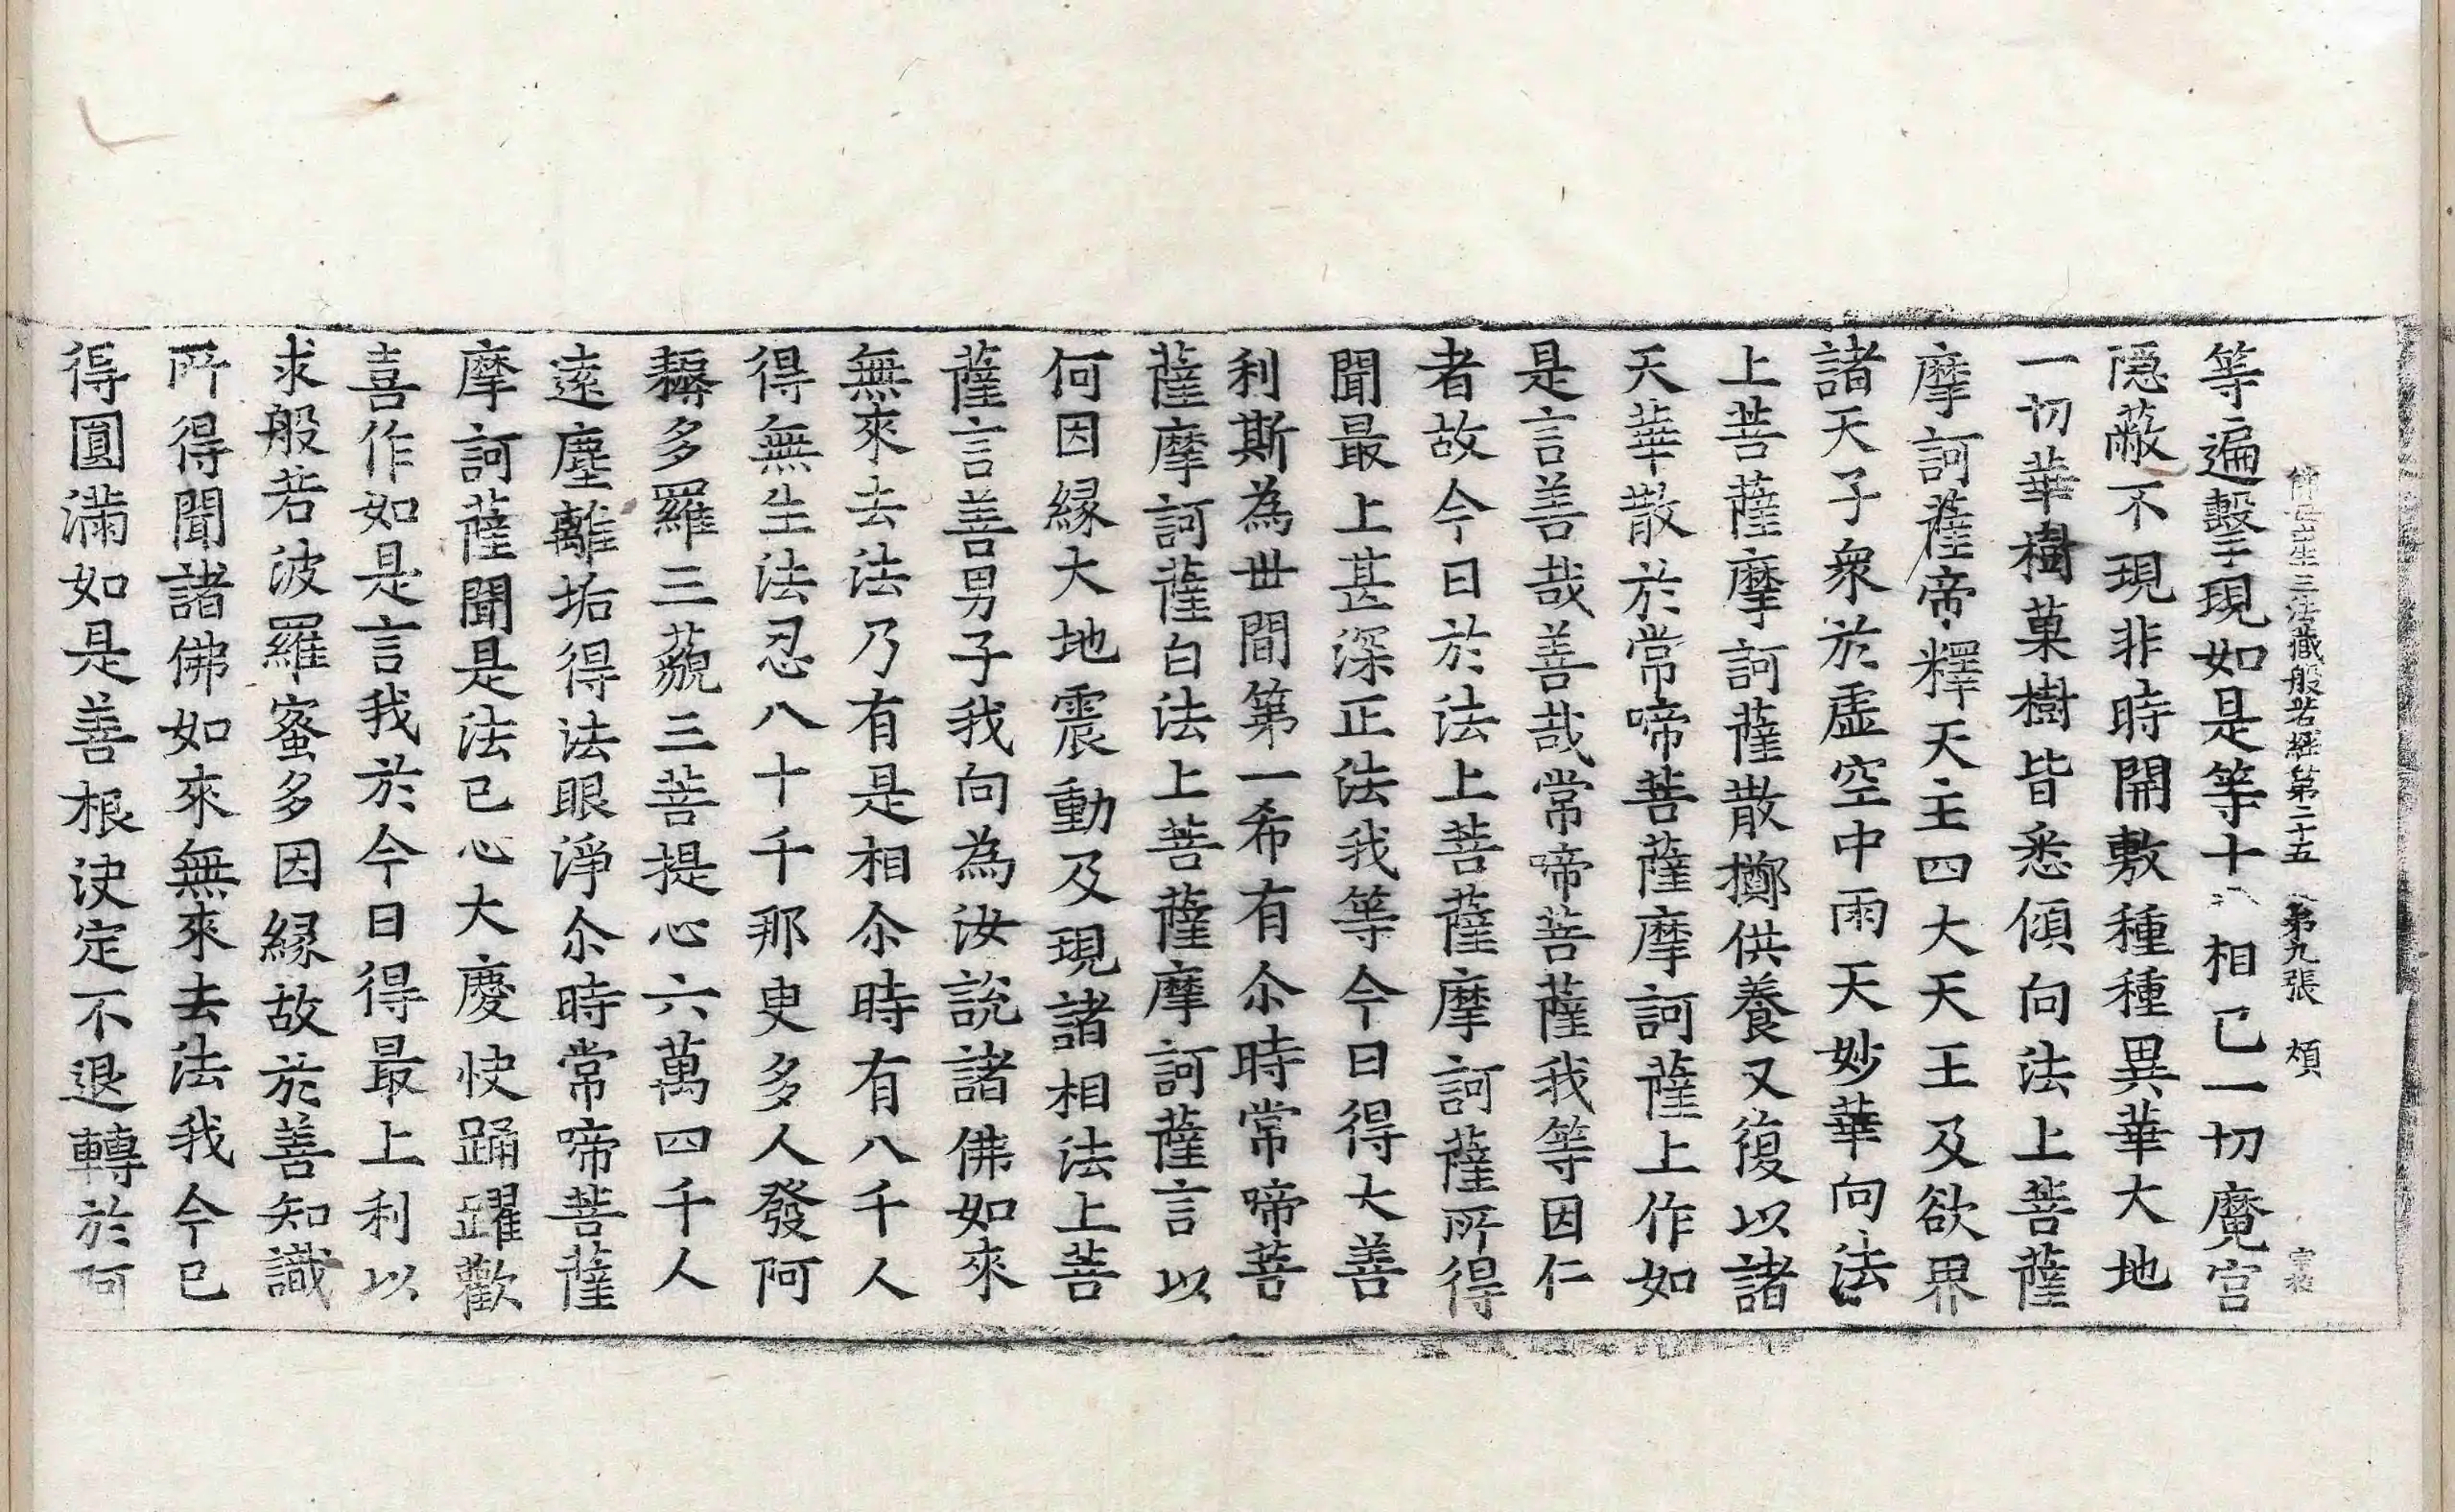 佛母出生三法藏般若經第二十五 第九張 頍
等遍擊王現如是等十八相已一切魔宮
隱蔽不現非時開敷種種異華大地
一切華樹菓樹皆悉傾向法上菩薩
摩訶薩帝釋天主四大天王及欲界
諸天子衆於虛空中雨天妙華向法
上菩薩摩訶薩散擲供養又復以諸
天華散於常啼菩薩摩訶薩上作如
是言善哉善哉常啼菩薩我等因仁
者故今日於法上菩薩摩訶薩所得
聞最上甚深正法我等今日得大善
利斯為世間第一希有尒時常啼菩
薩摩訶薩白法上菩薩摩訶薩言以
何因緣大地震動及現諸相法上菩
薩言善男子我向為汝說諸佛如來
無來去法乃有是相尒時有八千人
得無生法忍八十千那更多人發阿
耨多羅三藐三菩提心六萬四千人
遠塵離垢得法眼淨尒時常啼菩薩
摩訶薩聞是法已心大慶快踊躍歡
喜作如是言我於今日得最上利以
求般若波羅蜜多因緣故於善知識
所得聞諸佛如來無來去法我今已
得圓滿如是善根決定不退轉於阿